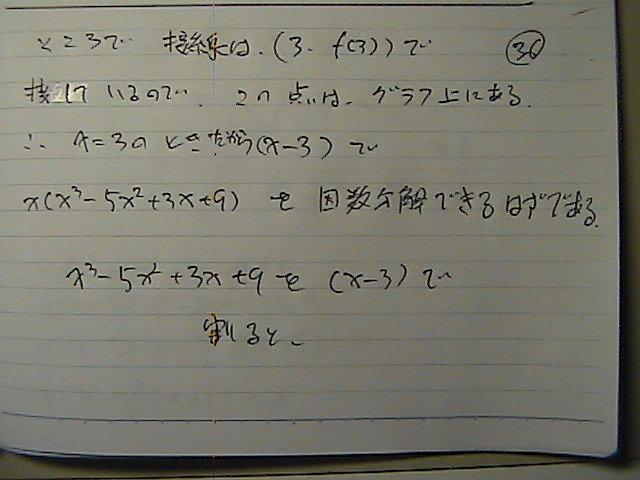 ところで 接線は、(3, f(3))で
㊱
接しているので、この点は、グラフ上にある。
∴ x=3のときだから(x-3)で
x(x³-5x²+3x+9) を 因数分解できるはずである。
x³-5x²+3x+9 を (x-3)で
割ると、